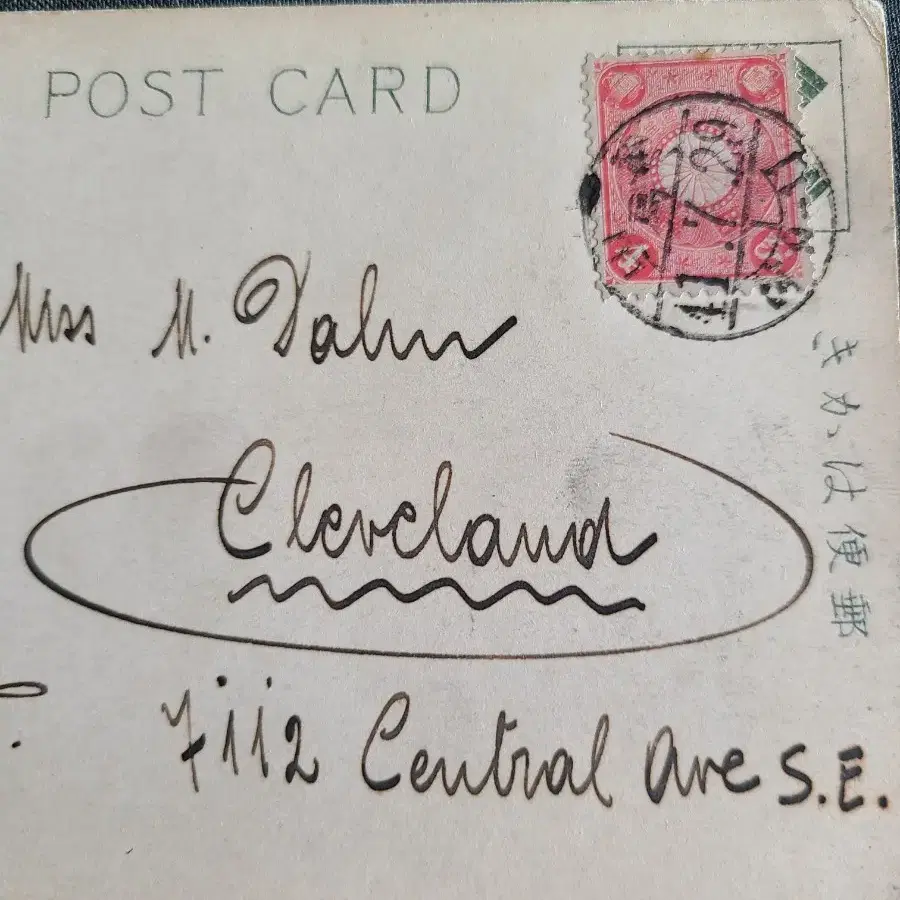 POST CARD
41.7.29
Miss M. Dahm
Cleveland
7112 Central Ave S.E.
郵便はかき